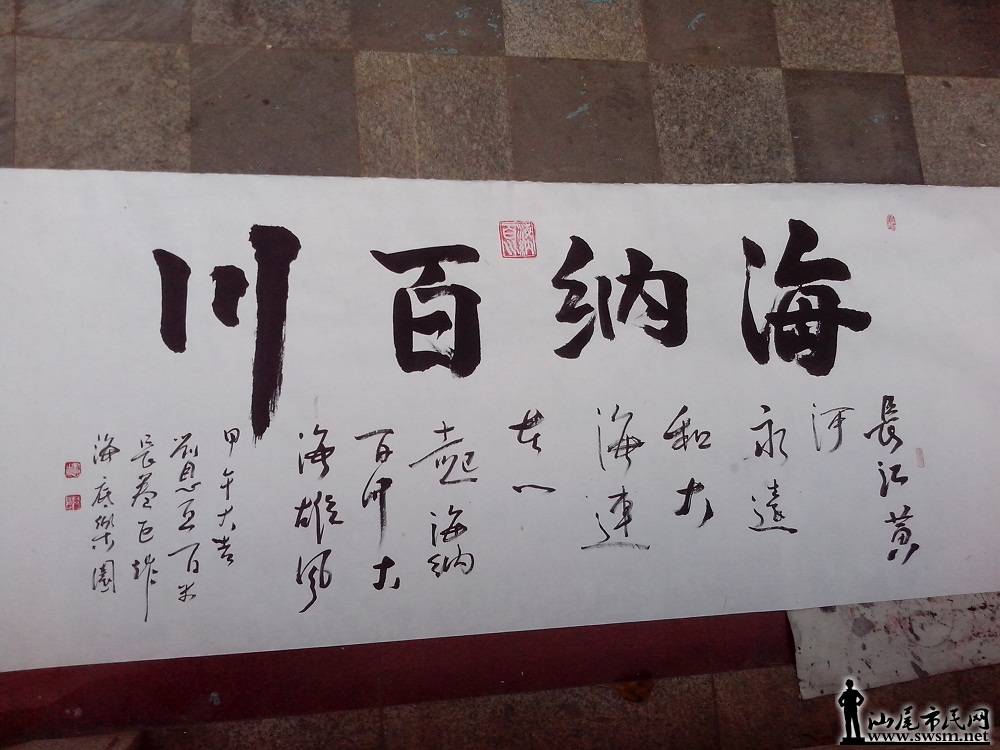 海纳百川
長江黄
河
永遠
和大
海連
在一
起海纳
百川大
海雄风
甲午大吉
百米
長卷巨作
海底樂園
汕尾市民网
www.swsm.net